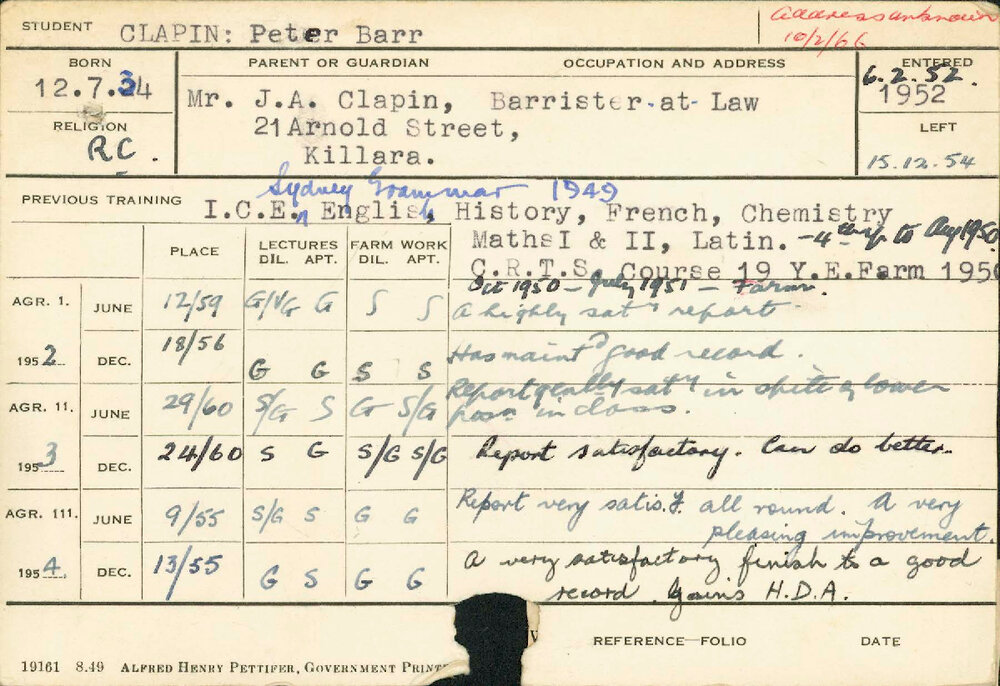 STUDENT CLAPIN: Peter Barr
Address unknown
10/2/66
BORN PARENT OR GUARDIAN OCCUPATION AND ADDRESS ENTERED
12.7.34 Mr. J.A. Clapin, Barrister-at-Law 6.2.52. 1952
21 Arnold Street,
RELIGION LEFT
R.C. Killara. 15.12.54
Sydney Grammar 1949
PREVIOUS TRAINING I.C.E. English, History, French, Chemistry
Maths I & II, Latin. - 4th yr to Aug 1950
C.R.T.S. Course 19 Y.E.Farm 1950
Oct 1950 - July 1951 - Farm.
PLACE LECTURES FARM WORK
DIL. APT. DIL. APT.
AGR. 1. JUNE 12/59 G/VG G S S A highly saty report
1952 DEC. 18/56 G G S S Has maintd good record.
AGR. 11. JUNE 29/60 S/G S G S/G Report geally saty in spite of lower
posn in class.
1953 DEC. 24/60 S G S/G S/G Report satisfactory. Can do better.
AGR. 111. JUNE 9/55 S/G S G G Report very satis.y. all round. A very
pleasing improvement.
1954 DEC. 13/55 G S G G A very satisfactory finish to a good
record. Gains H.D.A.
REFERENCE—FOLIO DATE
19161 8.49 ALFRED HENRY PETTIFER, GOVERNMENT PRINT